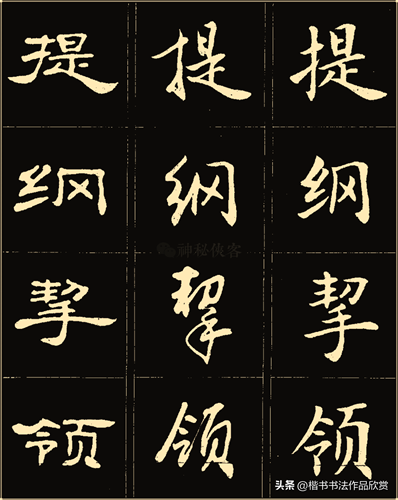 提 提 提
纲 纲 纲
神秘侠客
挈 挈 挈
领 领 领
头条 @楷书书法作品欣赏